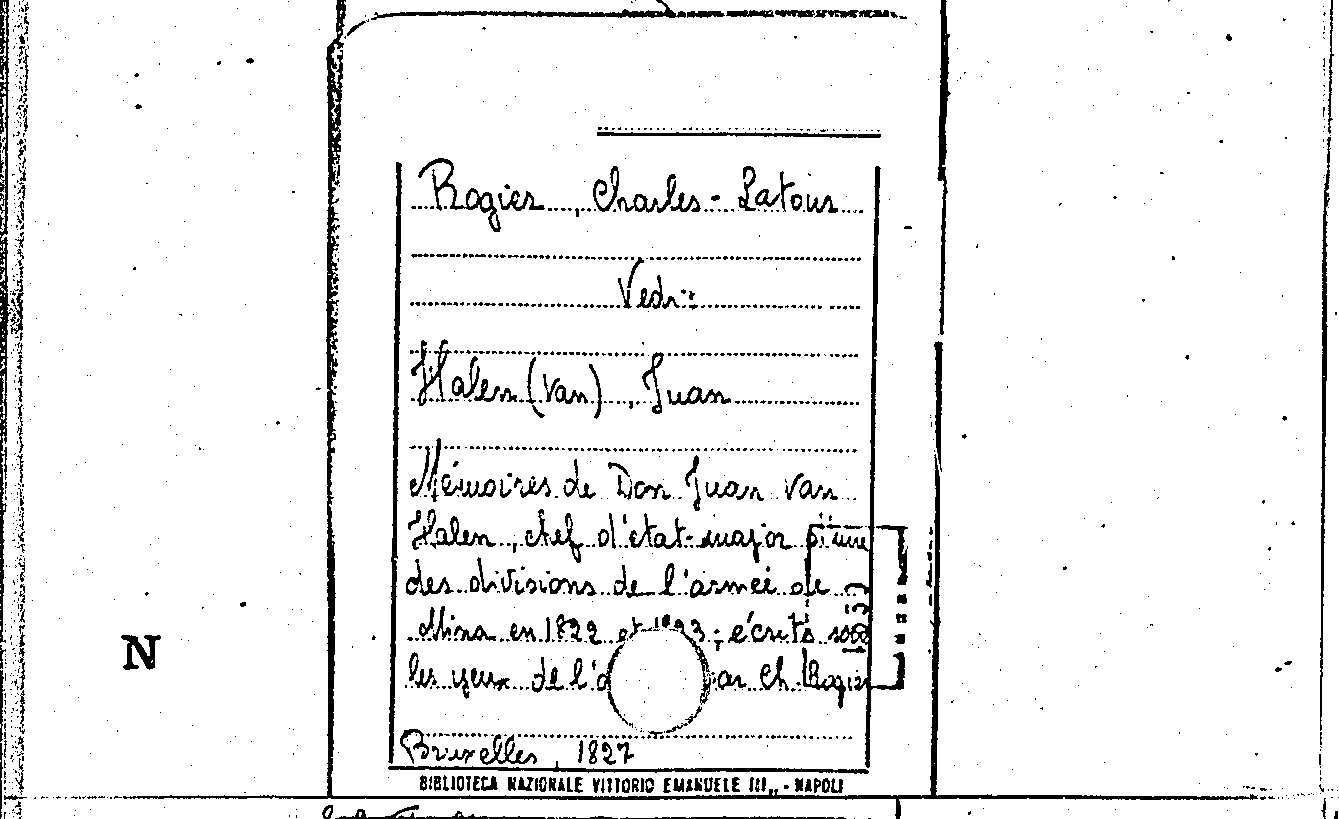 Rogier, Charles-Latour
Vedi:
Halen (van), Juan
Mémoires de Don Juan Van
Halen, chef d'état-major d'une
des divisions de l'armée de
Mina en 1822 et 1823; écrits sous
les yeux de l'a par Ch. Rogier
Bruxelles, 1827
N
BIBLIOTECA NAZIONALE VITTORIO EMANUELE III„ - NAPOLI